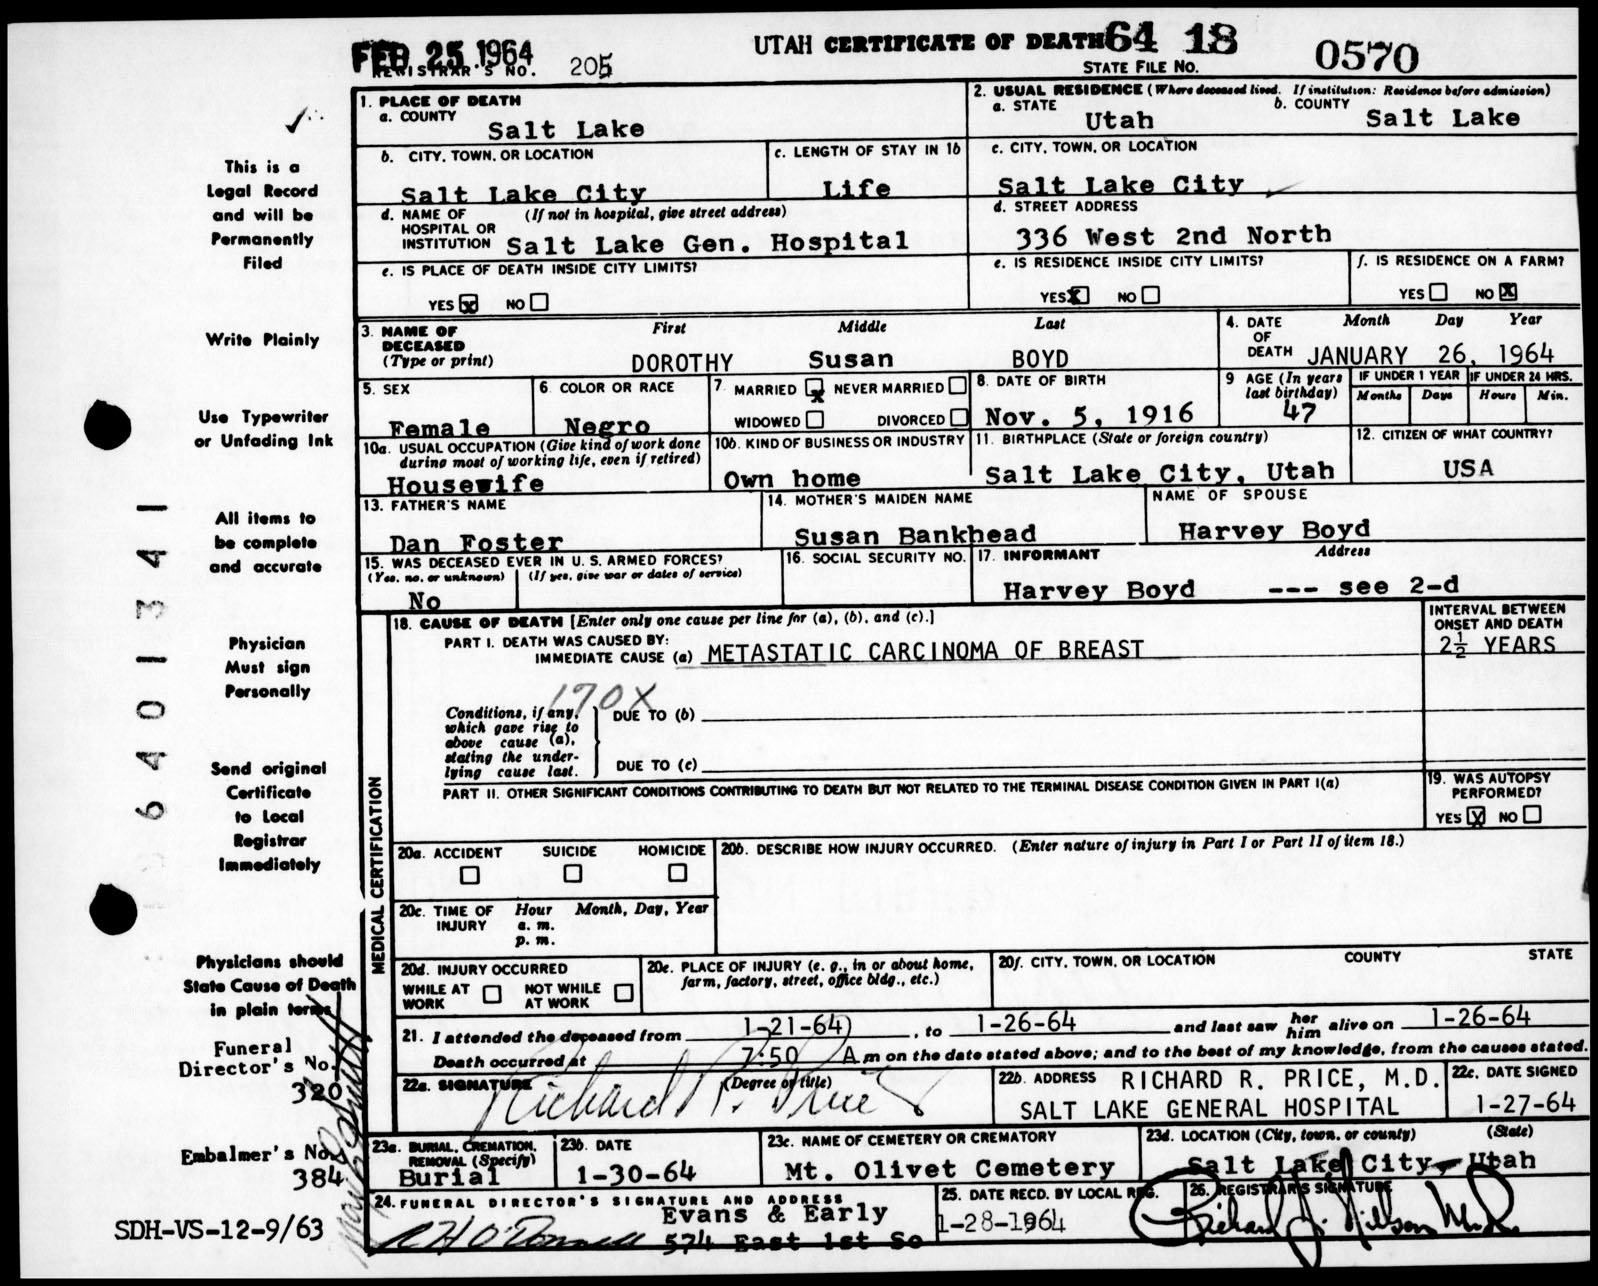 FEB 25 1964
UTAH CERTIFICATE OF DEATH 64 18 0570
REGISTRAR'S NO. 205
STATE FILE NO.
1. PLACE OF DEATH
a. COUNTY Salt Lake
2. USUAL RESIDENCE (Where deceased lived. If institution: Residence before admission)
a. STATE Utah b. COUNTY Salt Lake
b. CITY, TOWN, OR LOCATION Salt Lake City
c. LENGTH OF STAY IN 1b Life
c. CITY, TOWN, OR LOCATION Salt Lake City
d. NAME OF HOSPITAL OR INSTITUTION (If not in hospital, give street address) Salt Lake Gen. Hospital
d. STREET ADDRESS 336 West 2nd North
e. IS PLACE OF DEATH INSIDE CITY LIMITS? YES X NO
e. IS RESIDENCE INSIDE CITY LIMITS? YES X NO
f. IS RESIDENCE ON A FARM? YES NO X
3. NAME OF DECEASED (Type or print) First Middle Last
DOROTHY Susan BOYD
4. DATE OF DEATH Month Day Year
JANUARY 26, 1964
5. SEX Female
6. COLOR OR RACE Negro
7. MARRIED X NEVER MARRIED
WIDOWED DIVORCED
8. DATE OF BIRTH Nov. 5, 1916
9 AGE (In years last birthday) 47
IF UNDER 1 YEAR Months Days
IF UNDER 24 HRS. Hours Min.
10a. USUAL OCCUPATION (Give kind of work done during most of working life, even if retired) Housewife
10b. KIND OF BUSINESS OR INDUSTRY Own home
11. BIRTHPLACE (State or foreign country) Salt Lake City, Utah
12. CITIZEN OF WHAT COUNTRY? USA
13. FATHER'S NAME Dan Foster
14. MOTHER'S MAIDEN NAME Susan Bankhead
NAME OF SPOUSE Harvey Boyd
15. WAS DECEASED EVER IN U. S. ARMED FORCES?
(Yes, no, or unknown) (If yes, give war or dates of service)
No
16. SOCIAL SECURITY NO.
17. INFORMANT Address
Harvey Boyd --- see 2-d
MEDICAL CERTIFICATION
18. CAUSE OF DEATH [Enter only one cause per line for (a), (b), and (c).]
INTERVAL BETWEEN ONSET AND DEATH
PART I. DEATH WAS CAUSED BY:
IMMEDIATE CAUSE (a) METASTATIC CARCINOMA OF BREAST 2½ YEARS
170X
Conditions, if any, which gave rise to above cause (a), stating the underlying cause last.
DUE TO (b)
DUE TO (c)
PART II. OTHER SIGNIFICANT CONDITIONS CONTRIBUTING TO DEATH BUT NOT RELATED TO THE TERMINAL DISEASE CONDITION GIVEN IN PART I(a)
19. WAS AUTOPSY PERFORMED? YES X NO
20a. ACCIDENT SUICIDE HOMICIDE
20b. DESCRIBE HOW INJURY OCCURRED. (Enter nature of injury in Part I or Part II of item 18.)
20c. TIME OF INJURY Hour Month, Day, Year
a. m.
p. m.
20d. INJURY OCCURRED
WHILE AT WORK NOT WHILE AT WORK
20e. PLACE OF INJURY (e. g., in or about home, farm, factory, street, office bldg., etc.)
20f. CITY, TOWN, OR LOCATION COUNTY STATE
21. I attended the deceased from 1-21-64, to 1-26-64 and last saw her him alive on 1-26-64
Death occurred at 7:50 A m on the date stated above; and to the best of my knowledge, from the causes stated.
22a. SIGNATURE (Degree or title)
Richard R. Price
22b. ADDRESS RICHARD R. PRICE, M.D.
SALT LAKE GENERAL HOSPITAL
22c. DATE SIGNED 1-27-64
23a. BURIAL, CREMATION, REMOVAL (Specify) Burial
23b. DATE 1-30-64
23c. NAME OF CEMETERY OR CREMATORY Mt. Olivet Cemetery
23d. LOCATION (City, town, or county) (State)
Salt Lake City, Utah
24. FUNERAL DIRECTOR'S SIGNATURE AND ADDRESS
Evans & Early
574 East 1st So
25. DATE RECD. BY LOCAL REG. 1-28-1964
26. REGISTRAR'S SIGNATURE
This is a
Legal Record
and will be
Permanently
Filed
Write Plainly
Use Typewriter
or Unfading Ink
All items to
be complete
and accurate
Physician
Must sign
Personally
Send original
Certificate
to Local
Registrar
Immediately
Physicians should
State Cause of Death
in plain terms
Funeral
Director's No.
320
Embalmer's No.
384
SDH-VS-12-9/63
6401341